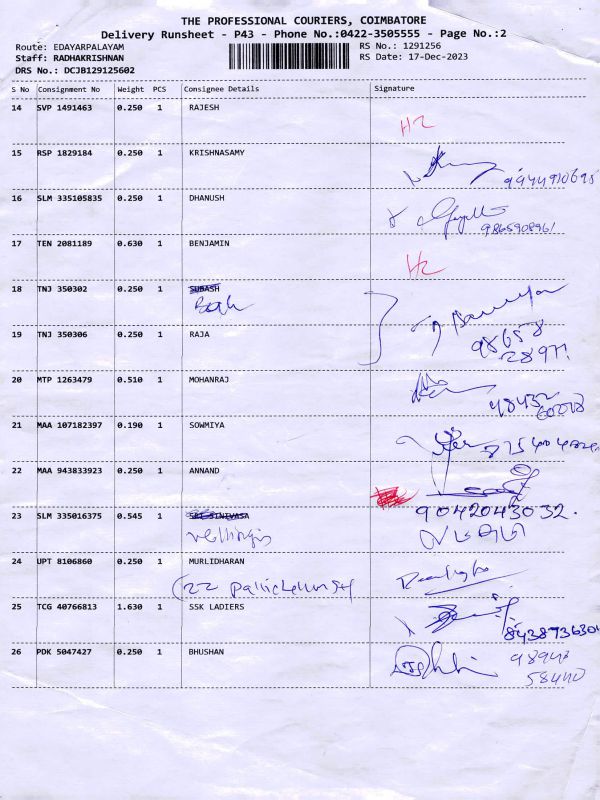 THE PROFESSIONAL COURIERS, COIMBATORE
Delivery Runsheet - P43 - Phone No.:0422-3505555 - Page No.:2
Route: EDAYARPALAYAM
Staff: RADHAKRISHNAN
DRS No.: DCJB129125602
RS No.: 1291256
RS Date: 17-Dec-2023
S No Consignment No Weight PCS Consignee Details Signature
14 SVP 1491463 0.250 1 RAJESH
15 RSP 1829184 0.250 1 KRISHNASAMY
16 SLM 335105835 0.250 1 DHANUSH
9865908961
17 TEN 2081189 0.630 1 BENJAMIN
18 TNJ 350302 0.250 1 SUBASH
19 TNJ 350306 0.250 1 RAJA
98658
28971
20 MTP 1263479 0.510 1 MOHANRAJ
21 MAA 107182397 0.190 1 SOWMIYA
22 MAA 943833923 0.250 1 ANNAND
23 SLM 335016375 0.545 1 SRI SINIVASA
9042043032.
24 UPT 8106860 0.250 1 MURLIDHARAN
25 TCG 40766813 1.630 1 SSK LADIERS
8438736304
26 PDK 5047427 0.250 1 BHUSHAN
98943
58440